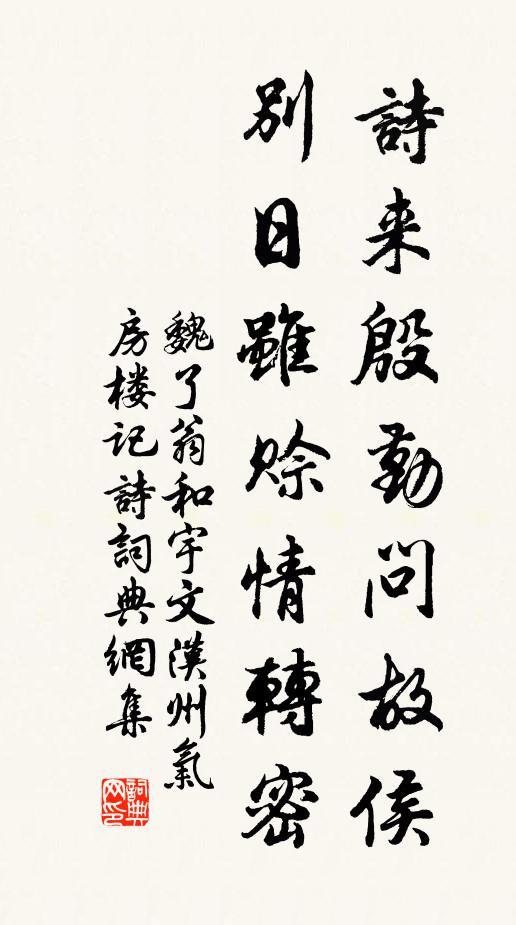 詩来殷勤問故侯
別日雖賒情轉密
魏了翁和宇文漢州氣
房楼记詩詞典網集
詞典
网印